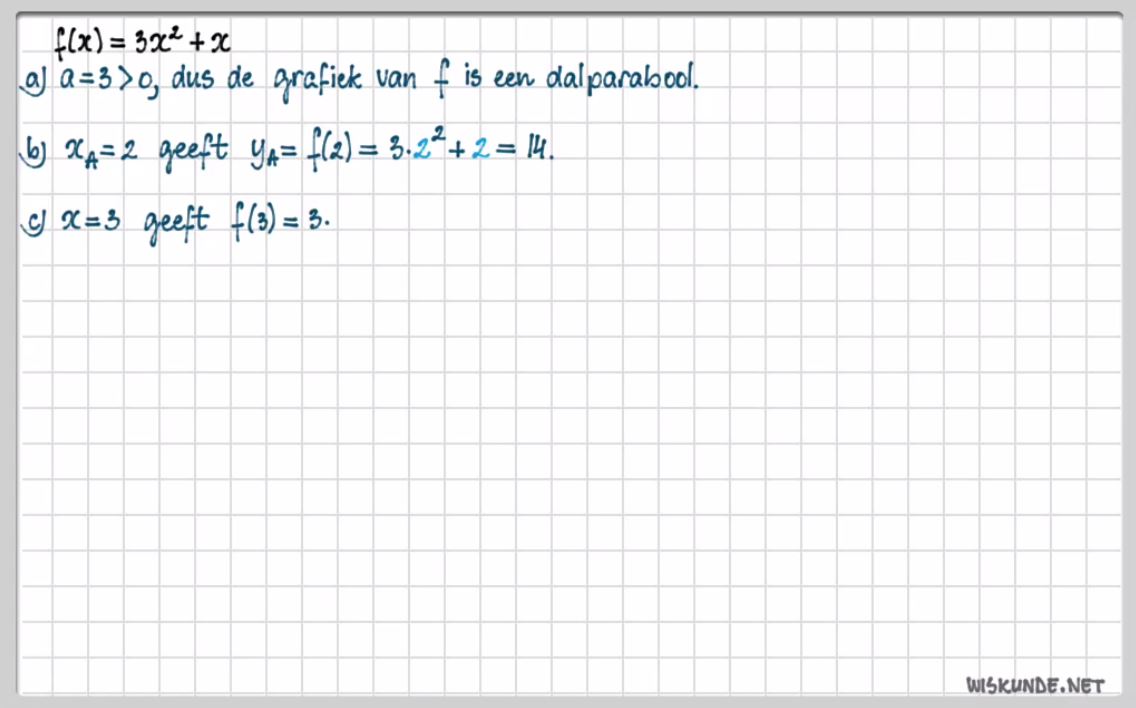 f(x) = 3x² + x
a) a = 3 > 0, dus de grafiek van f is een dalparabool.
b) x_A = 2 geeft y_A = f(2) = 3·2² + 2 = 14.
c) x = 3 geeft f(3) = 3.
WISKUNDE.NET